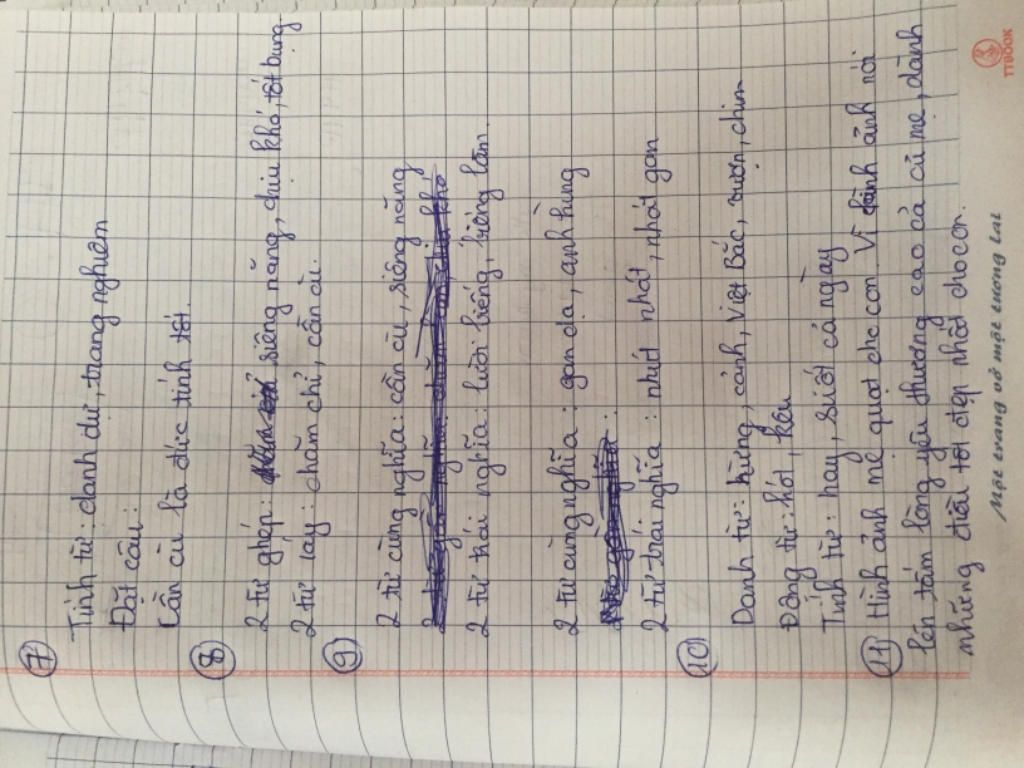 7
Tính từ: danh dự, trang nghiêm
Đặt câu:
Cần cù là đức tính tốt.
8
2 từ ghép: siêng năng, chịu khó, tốt bụng
2 từ láy: chăm chỉ, cần cù.
9
2 từ cùng nghĩa: cần cù, siêng năng
2 từ trái nghĩa: lười biếng, biếng lằm.
2 từ cùng nghĩa: gan dạ, anh hùng
2 từ trái nghĩa: nhút nhát, nhát gan
10
Danh từ: hừng, cảnh, Việt Bắc, vượn, chim
Động từ: hót, kêu
Tính từ: hay, suốt cả ngày
11 Hình ảnh mẹ quạt cho con. Vì hình ảnh nói
lên tấm lòng yêu thương cao cả củ mẹ, dành
những điều tốt đẹp nhất cho con.
Một trang vở một tương lai
TTBOOK